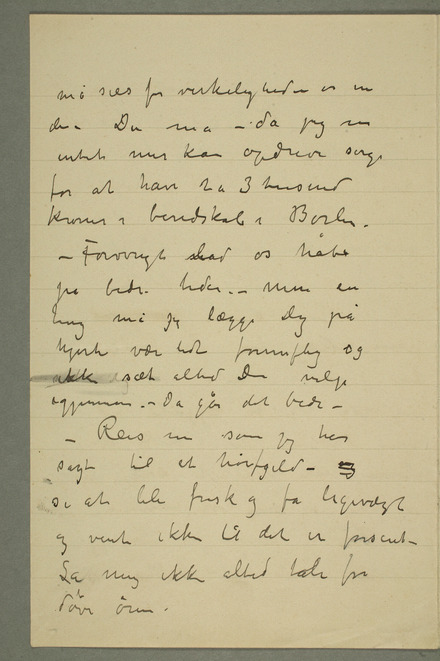 må sees for virkeligheden os en
den Du må – da jeg nu
intet mer kan opdrive sørge
for at have 2 a 3 tusend
kroner i beredskab i Berlin.
– Forøvrigt lad os håbe
på bedre tider. – men en
ting må jeg lægge Dig på
hjerte vær lidt fornuftig og
ikke sæt altid Din vilje
igjennem. – Da går det bedre –
– Reis nu som jeg har
sagt til et
se at bli frisk og få ligevægt
og vent ikke til det er forsent –
La mig ikke altid tale for
døve ören.